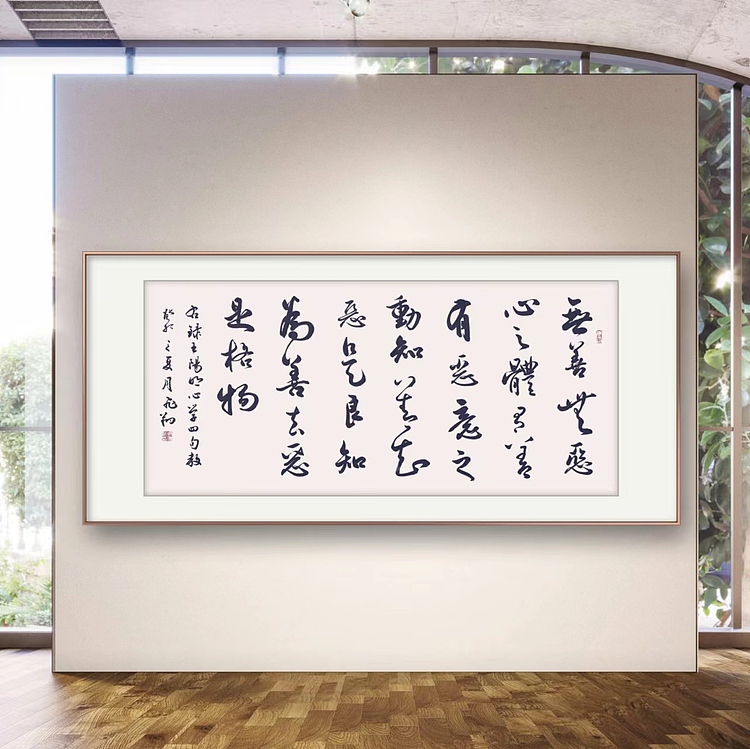 無善無惡
心之體有善
有惡意之
動知善知
惡是良知
為善去惡
是格物
右錄王陽明心学四句教
癸卯之夏月飛翔